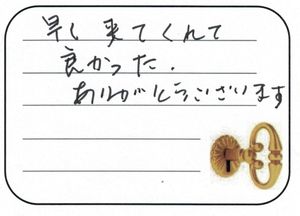 早く来てくれて
良かった.
ありがとうございます